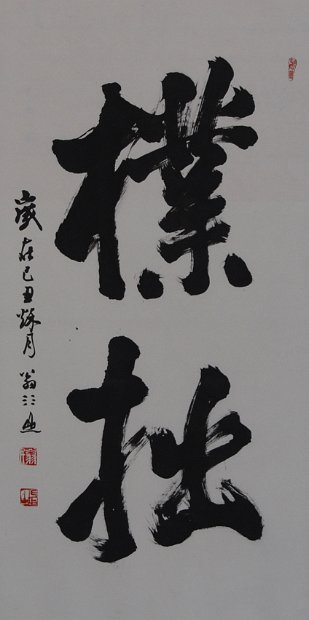 樸拙
歲在己丑秋月翁